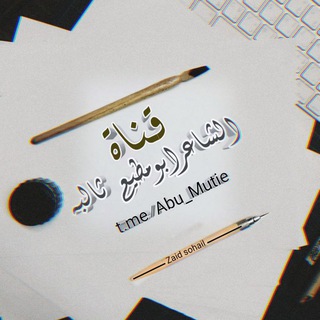 قناة
الشاعر ابو مطيع ثابه
t.me/Abu_Mutie
Zaid sohail